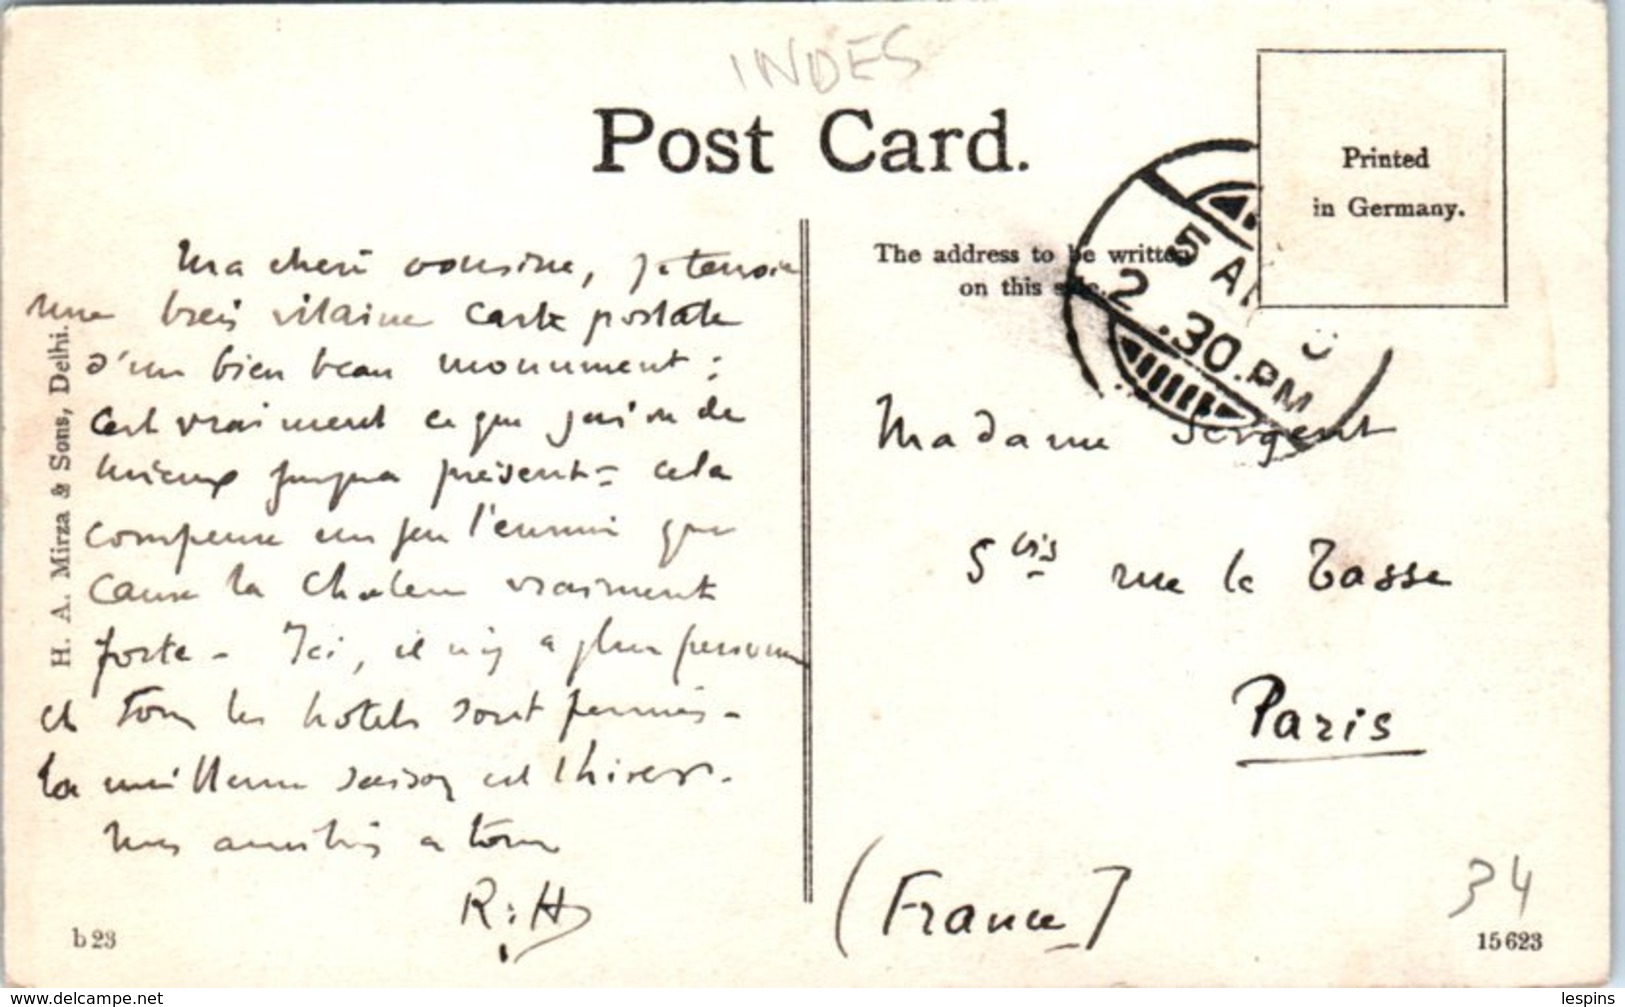 INDES
Post Card.
Printed
in Germany.
The address to be written
on this side.
5 A
2 .30.PM
H. A. Mirza & Sons, Delhi.
Ma chère cousine, je t'envoie
une vilaine carte postale
d'un bien beau monument ;
c'est vraiment ce que j'ai vu de
mieux jusqu'à présent - cela
compense un peu l'ennui que
cause la chaleur vraiment
forte - Ici, il n'y a plus personne
et tous les hotels sont fermés -
la meilleure saison est l'hiver -
Mes amitiés a tous
R. H
Madame Sergent
5 bis rue le Tasse
Paris
(France)
34
b 23
15 623
www.delcampe.net
lespins